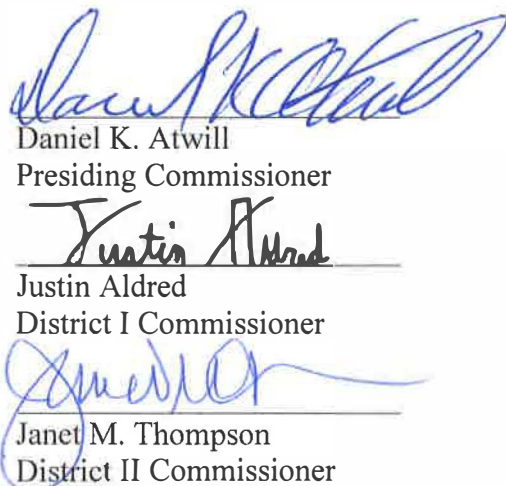 Daniel K Atwill
Daniel K. Atwill
Presiding Commissioner
Justin Aldred
Justin Aldred
District I Commissioner
Janet M. Thompson
District II Commissioner